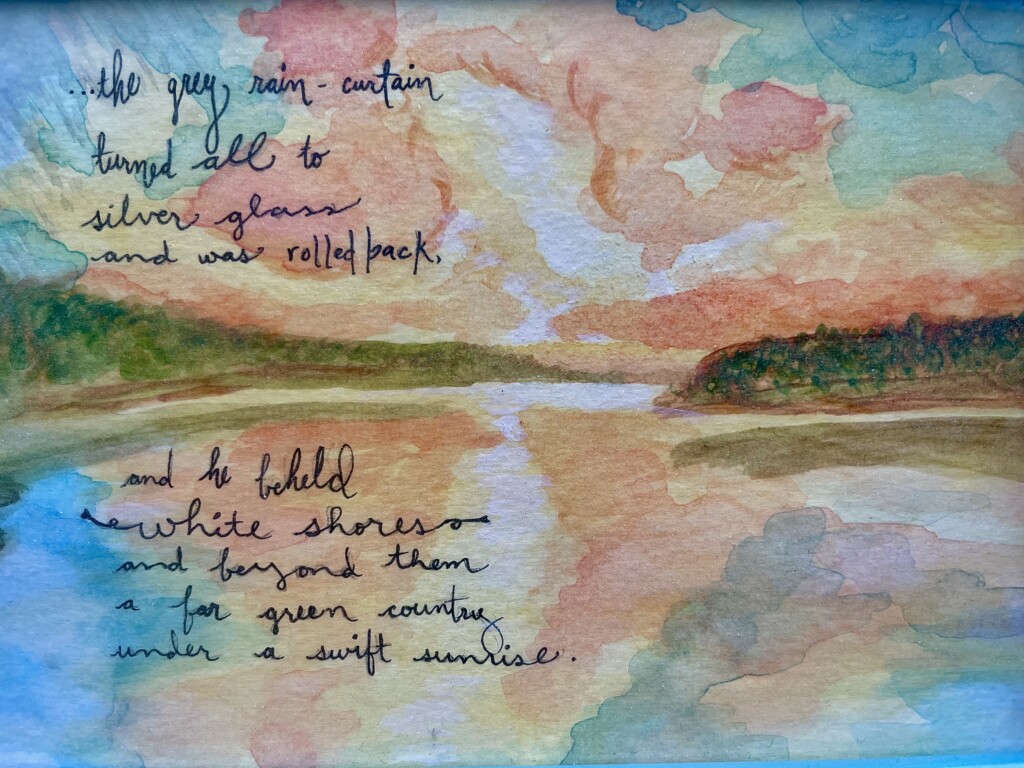 ...the grey rain-curtain
turned all to
silver glass
and was rolled back,
and he beheld
white shores
and beyond them
a far green country
under a swift sunrise.